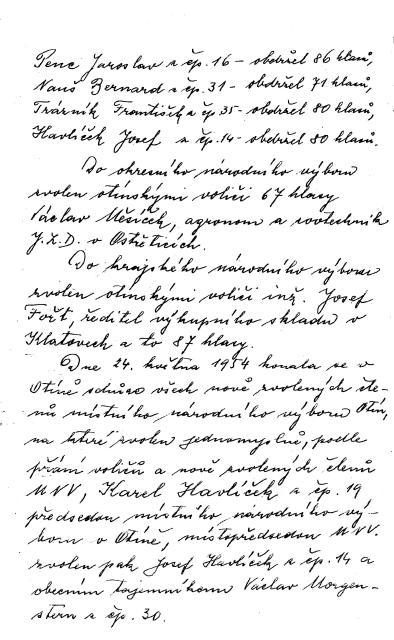 Penc Jaroslav z čp. 16 - obdržel 86 hlasů,
Nauš Bernard z čp. 31 - obdržel 71 hlasů,
Trázník František z čp. 35 - obdržel 80 hlasů,
Havlíček Josef z čp. 14 - obdržel 80 hlasů.
Do okresního národního výboru
zvolen otínskými voliči 67 hlasy
Václav Měsíček, agronom a zootechnik
J.Z.D. v Ostřeticích.
Do krajského národního výboru
zvolen otínskými voliči inž. Josef
Fořt, ředitel výkupního skladu v
Klatovech a to 87 hlasy.
Dne 24. května 1954 konala se v
Otíně schůze všech nově zvolených čle-
nů místního národního výboru Otín,
na které zvolen jednomyslně, podle
přání voličů a nově zvolených členů
MNV, Karel Havlíček z čp. 19
předsedou místního národního vý-
boru v Otíně, místopředsedou MNV.
zvolen pak Josef Havlíček z čp. 14 a
obecním tajemníkem Václav Morgen-
stern z čp. 30.